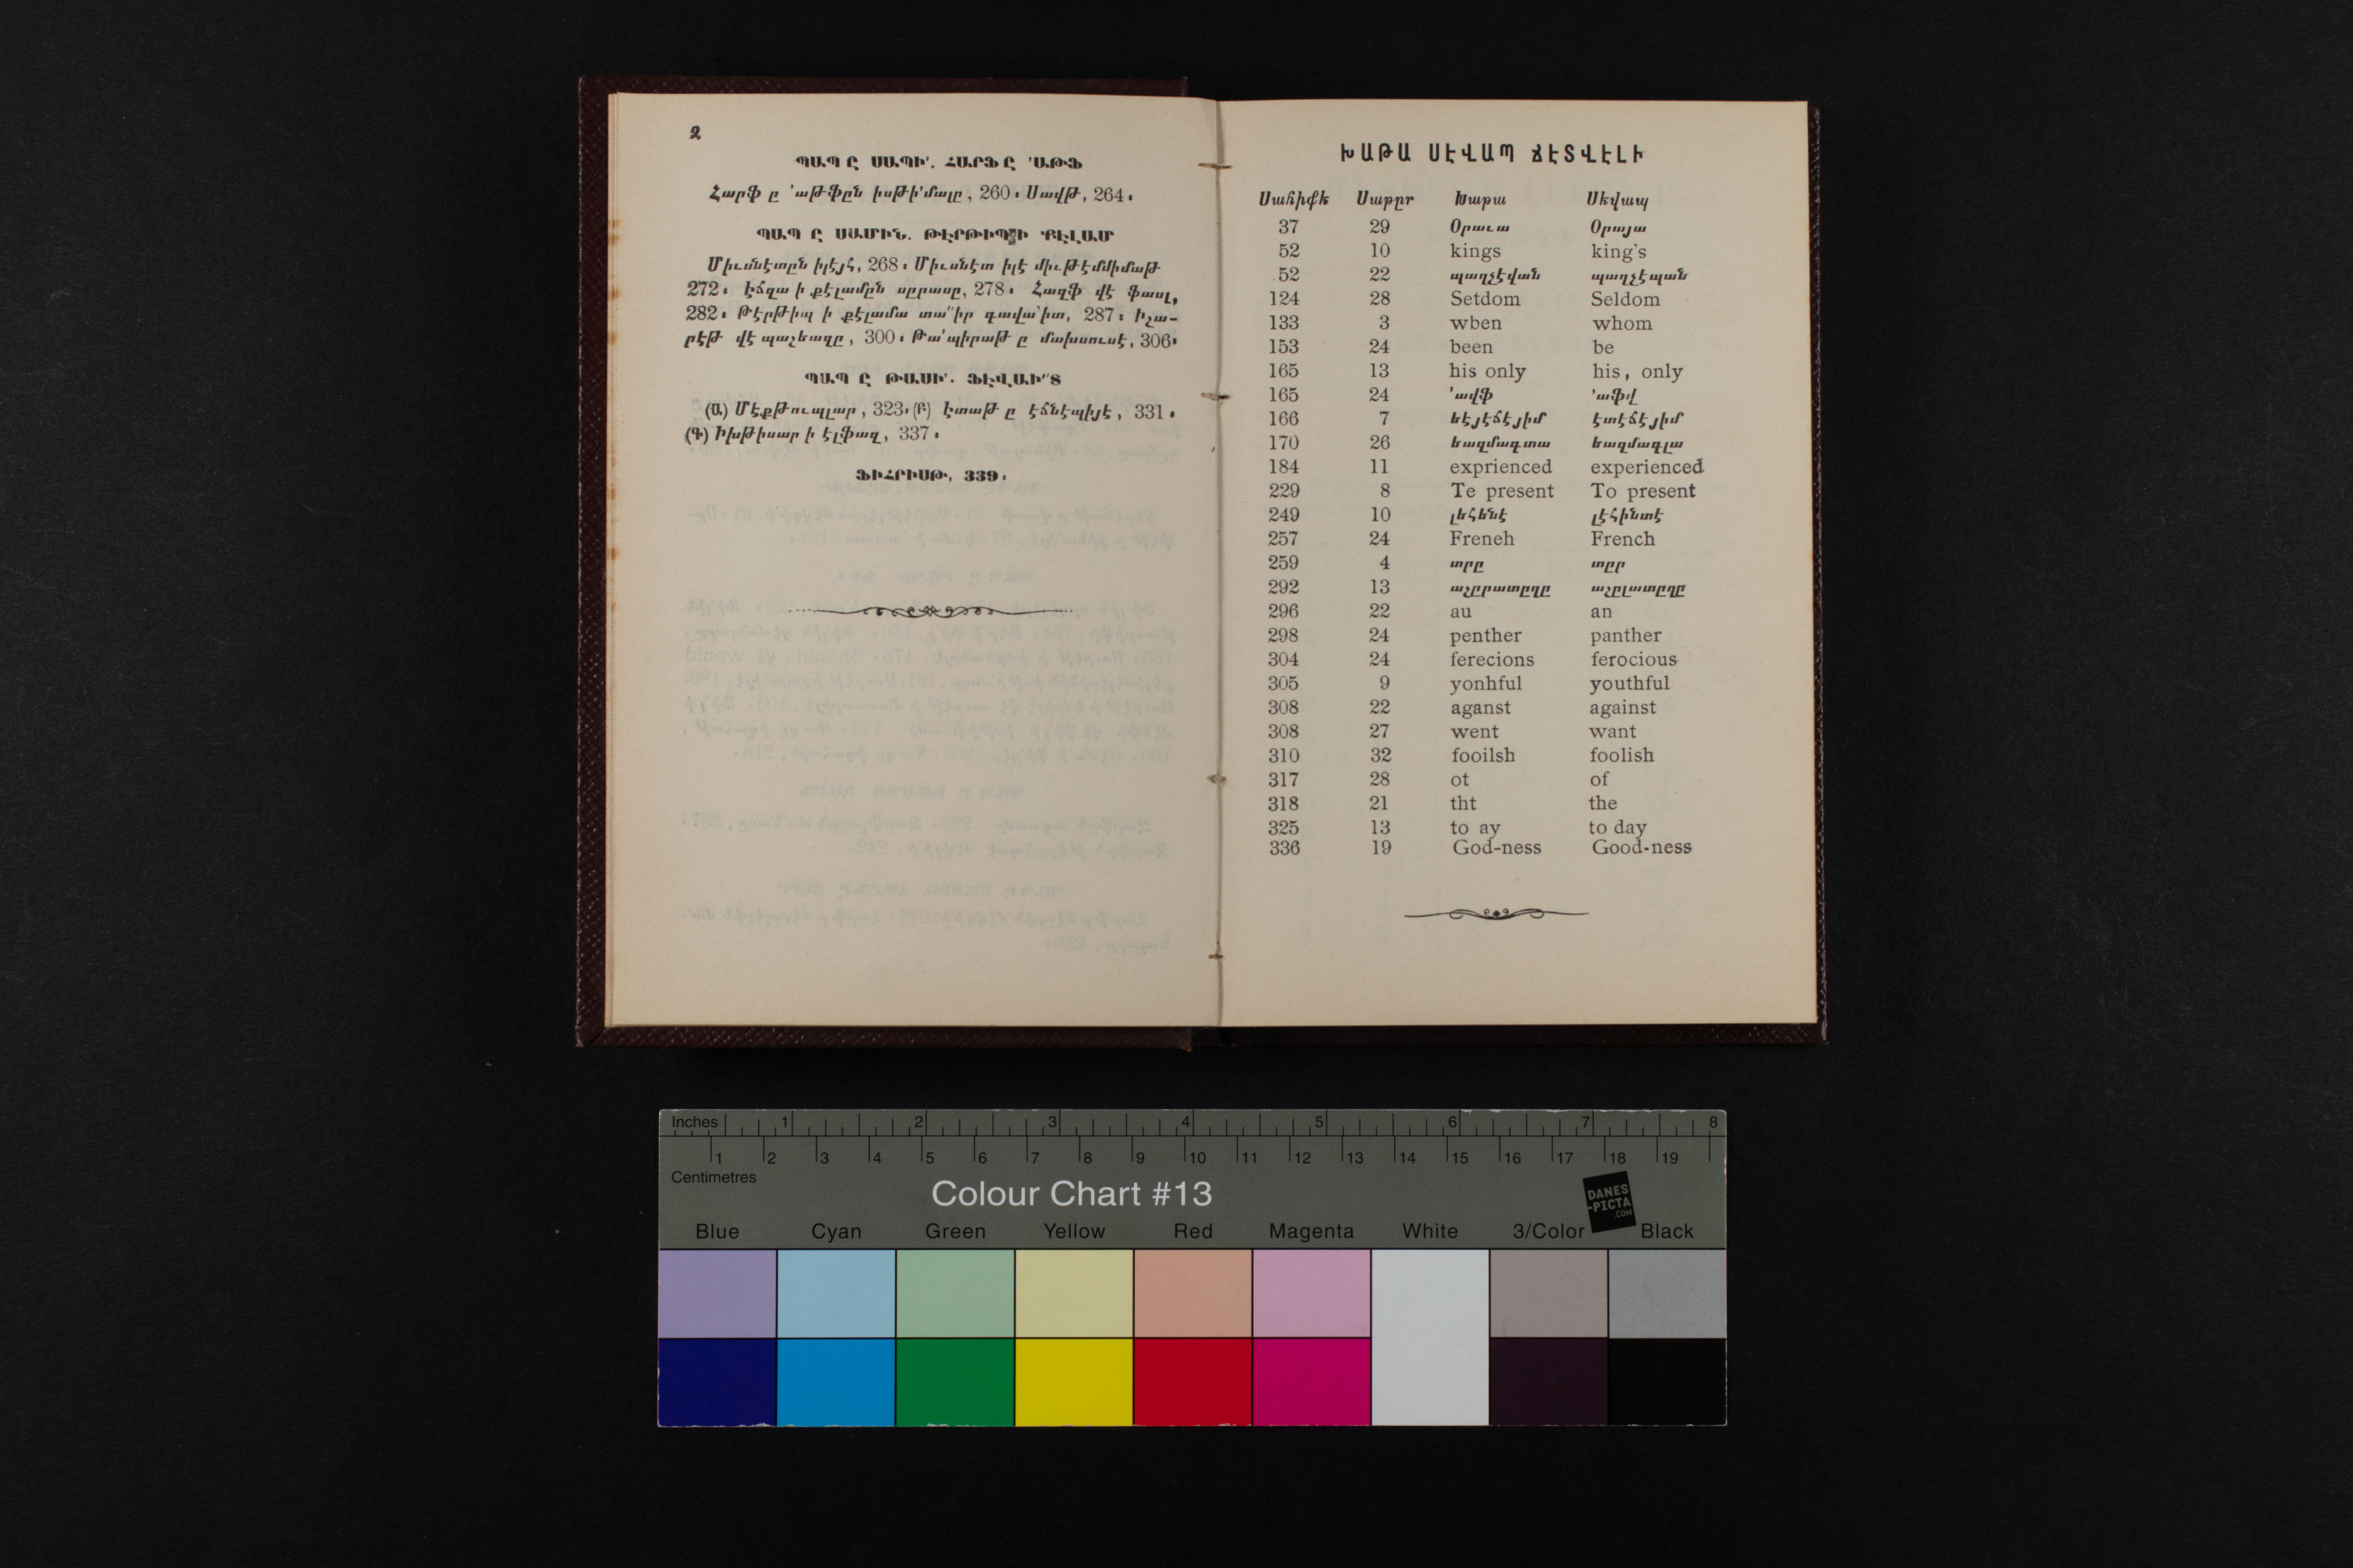 2
ՊԱՊ Ը ՍԱՊԻ՛. ՀԱՐՖ Ը ՚ԱԹՖ
Հարֆ ը ՚աթֆըն իսթի՛մալը, 260։ Սավթ, 264։
ՊԱՊ Ը ՍԱՄԻՆ. ԹԷՐԹԻՊ Ի ՔԷԼԱՄ
Միւսնէտըն իլէյհ, 268։ Միւսնէտ իլէ միւթէմմիմաթ
272։ Էճզա ի քէլամըն սըրասը, 278։ Հազֆ վէ ֆասլ,
282։ Թէրթիպ ի քէլամա տա՛՛իր գավա՛իտ, 287։ Իշա-
րէթ վէ պաշեազը, 300։ Թա՛պիրաթ ը մախսուսէ, 306։
ՊԱՊ Ը ԹԱՍԻ՛. ՖԷՎԱԻ՛՛Տ
(Ա) Մէքթուպլար, 323։ (Բ) Էտաթ ը էճնէպիյէ, 331։
(Գ) Իխթիսար ի էլֆազ, 337։
ՖԻՀՐԻՍԹ, 339։
ԽԱԹԱ ՍԷՎԱՊ ՃԷՏՎԷԼԻ
Սահիֆե Սաթըր Խաթա Սեվապ
37 29 Օրաւա Օրայա
52 10 kings king's
52 22 պաղչէվան պաղչէպան
124 28 Setdom Seldom
133 3 wben whom
153 24 been be
165 13 his only his, only
165 24 ՚ավֆ ՚աֆվ
166 7 եէյէճէյիմ էտէճէյիմ
170 26 եազմագտա եազմագլա
184 11 exprienced experienced
229 8 Te present To present
249 10 լեհենէ լէհինտէ
257 24 Freneh French
259 4 տրը տըր
292 13 աչըրատըղը աչըլատըղը
296 22 au an
298 24 penther panther
304 24 ferecions ferocious
305 9 yonhful youthful
308 22 aganst against
308 27 went want
310 32 fooilsh foolish
317 28 ot of
318 21 tht the
325 13 to ay to day
336 19 God-ness Good-ness
Inches 1 2 3 4 5 6 7 8
1 2 3 4 5 6 7 8 9 10 11 12 13 14 15 16 17 18 19
Centimetres
Colour Chart #13
DANES
-PICTA
.COM
Blue Cyan Green Yellow Red Magenta White 3/Color Black